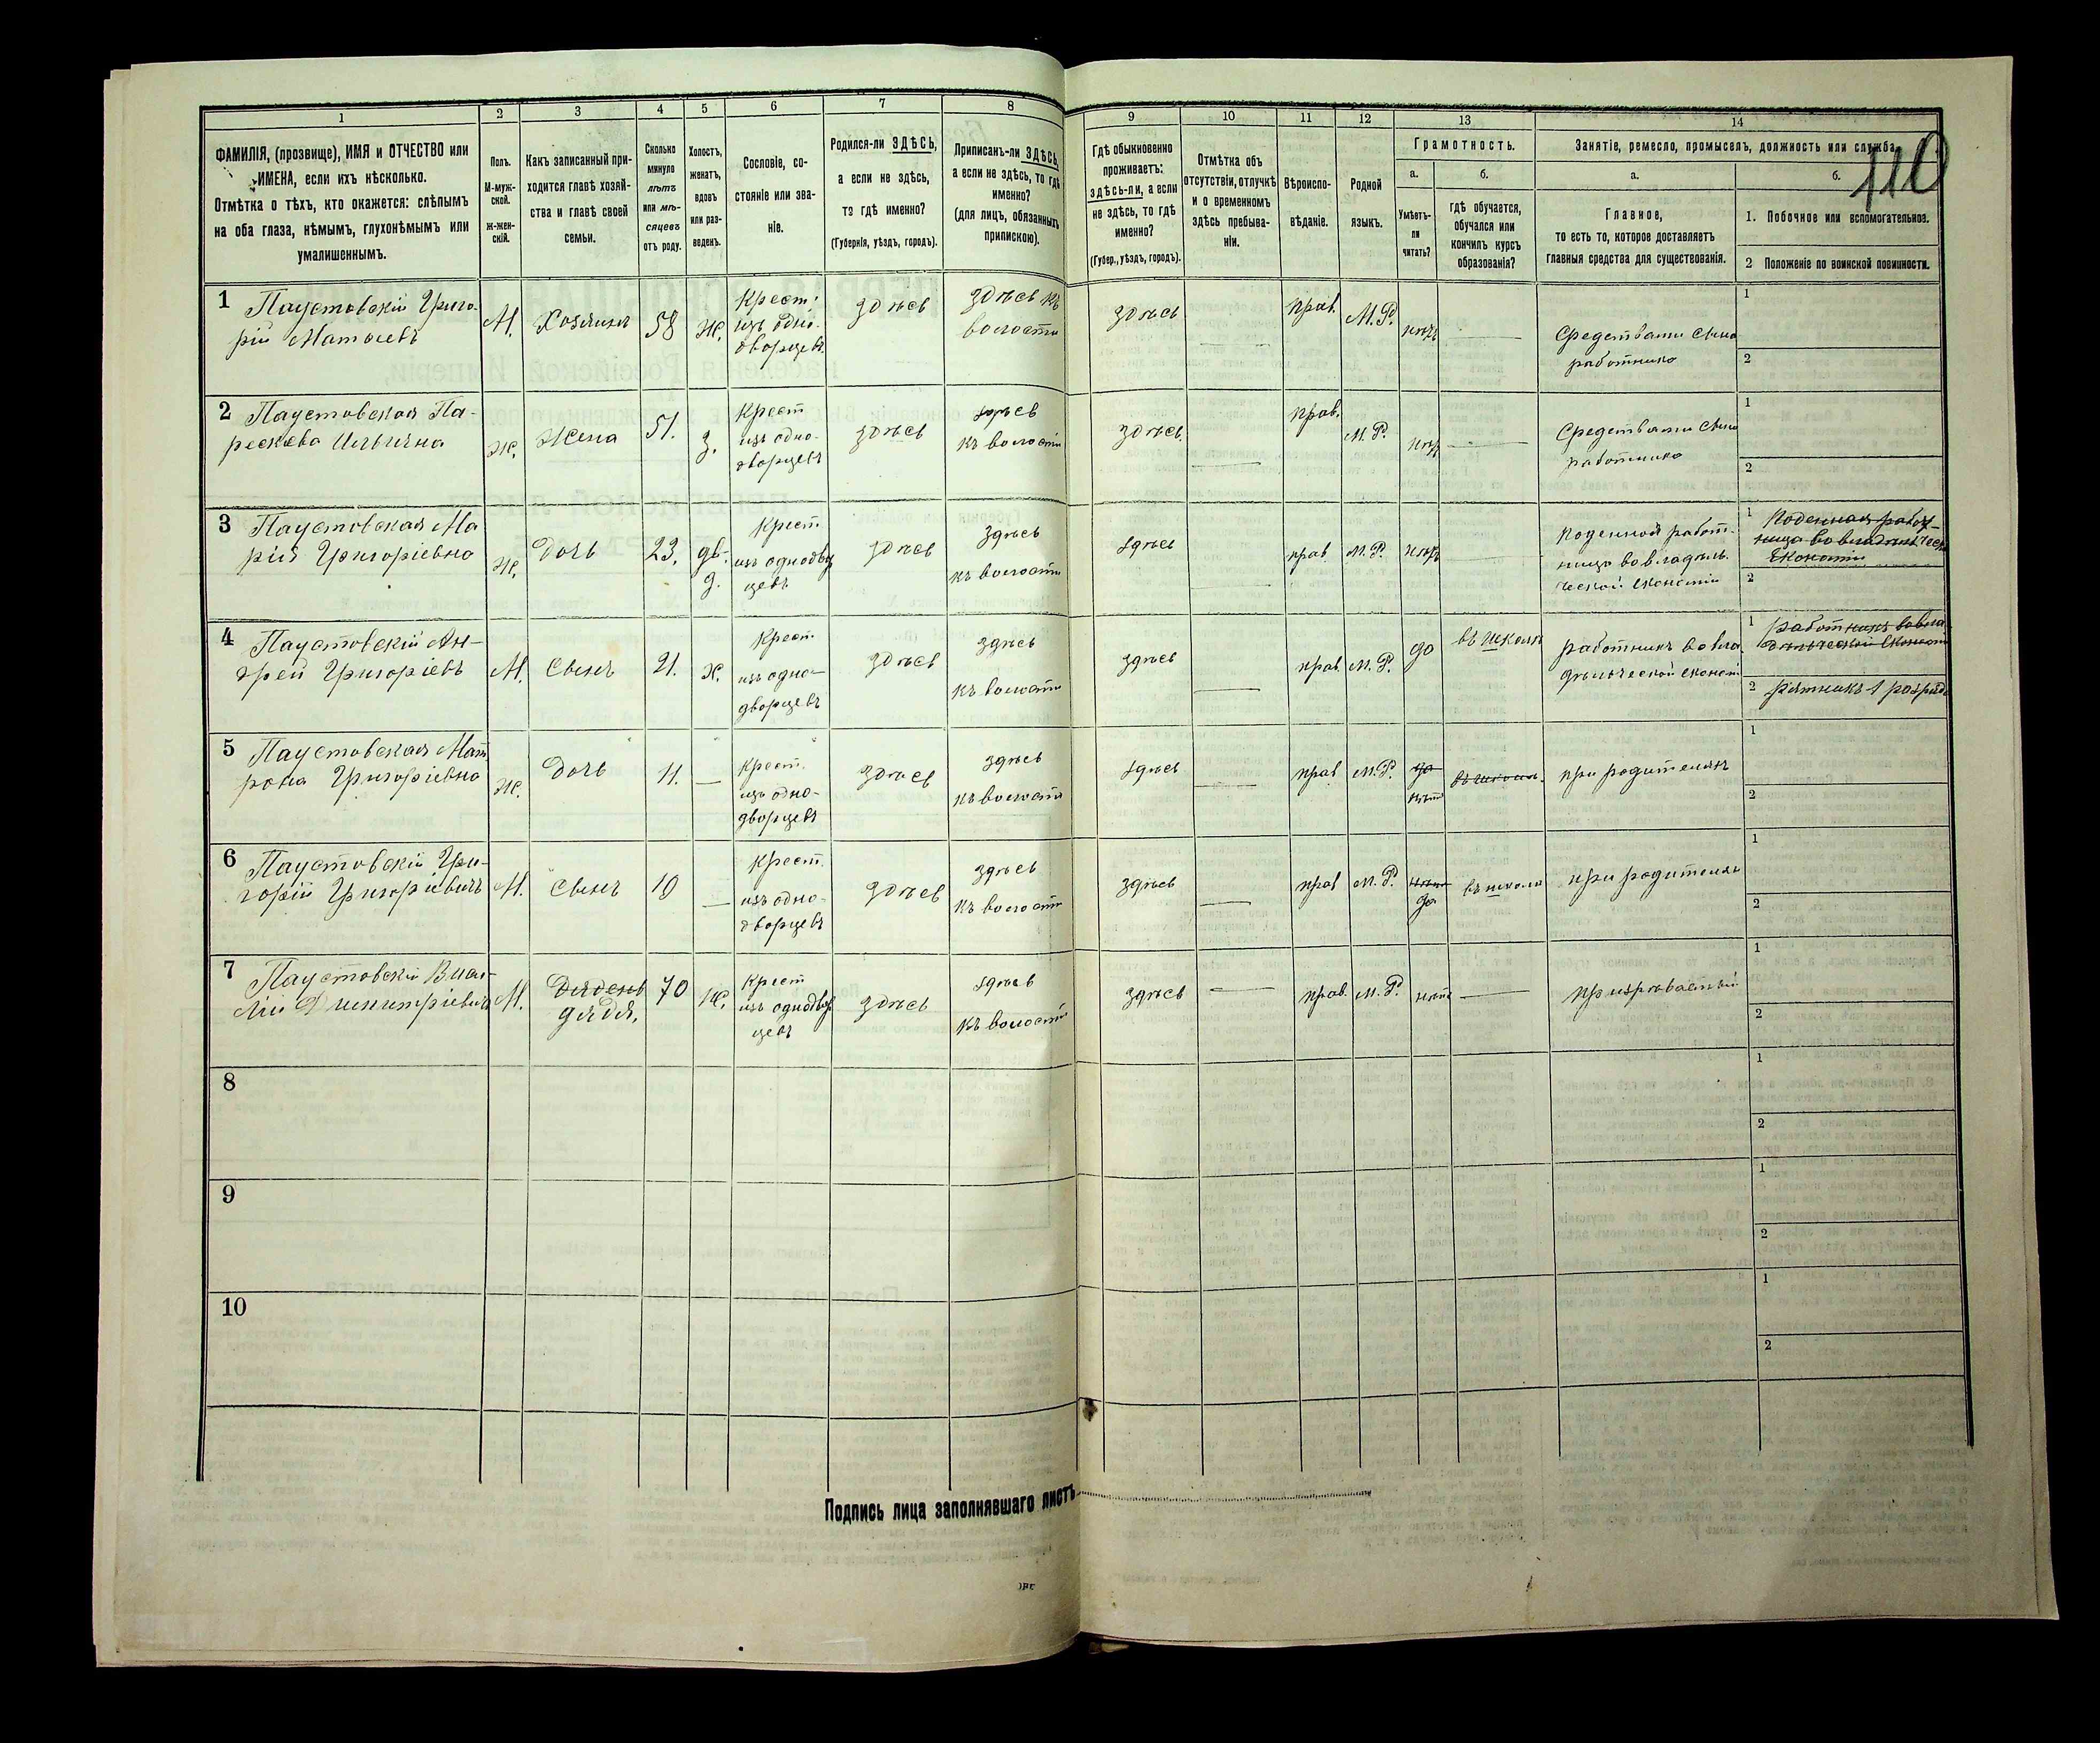 1
2
3
4
5
6
7
8
9
10
11
12
13
14
110
ФАМИЛІЯ, (прозвище), ИМЯ и ОТЧЕСТВО или
ИМЕНА, если ихъ нѣсколько.
Отмѣтка о тѣхъ, кто окажется: слѣпымъ
на оба глаза, нѣмымъ, глухонѣмымъ или
умалишеннымъ.
Полъ.
М-муж-
ской.
Ж-жен-
скій.
Какъ записанный при-
ходится главѣ хозяй-
ства и главѣ своей
семьи.
Сколько
минуло
лѣтъ
или мѣ-
сяцевъ
отъ роду.
Холостъ,
женатъ,
вдовъ
или раз-
веденъ.
Сословіе, со-
стояніе или зва-
ніе.
Родился-ли ЗДѢСЬ,
а если не здѣсь,
то гдѣ именно?
(Губернія, уѣздъ, городъ).
Приписанъ-ли ЗДѢСЬ,
а если не здѣсь, то гдѣ
именно?
(для лицъ, обязанныхъ
припискою).
Гдѣ обыкновенно
проживаетъ:
здѣсь-ли, а если
не здѣсь, то гдѣ
именно?
(Губер., уѣздъ, городъ).
Отмѣтка объ
отсутствіи, отлучкѣ
и о временномъ
здѣсь пребыва-
ніи.
Вѣроиспо-
вѣданіе.
Родной
языкъ.
Грамотность.
а.
Умѣетъ-
ли
читать?
б.
гдѣ обучается,
обучался или
кончилъ курсъ
образованія?
Занятіе, ремесло, промыселъ, должность или служба.
а.
Главное,
то есть то, которое доставляетъ
главныя средства для существованія.
б.
1. Побочное или вспомогательное.
2 Положеніе по воинской повинности.
1 Паустовскій Григо-
рій
М. Хозяинъ 58 Ж.
Крест.
изъ одно-
дворцевъ
здѣсь
здѣсь къ
волости
здѣсь
прав. М.Р. нѣтъ
Средствами сына
работника
1
2
2 Паустовская Па-
раскева Ильична
Ж. Жена 51. З.
Крест
изъ одно-
дворцевъ
здѣсь
здѣсь
къ волости
здѣсь
прав. М.Р. нѣтъ
Средствами сына
работника
1
2
3 Паустовская Ма
рія Григоріевна
Ж. Дочь 23. дѣ-
д.
Крест.
изъ однодвор
цевъ
здѣсь
здѣсь
къ волости
здѣсь
прав М.Р. нѣтъ
поденная работ-
ница во владѣль-
ческой економіи
1 Поденная работ-
ница во владѣльческ
Економіи
2
4 Паустовскій Ан-
дрей Григоріевъ
М. Сынъ 21. Х.
Крест.
изъ одно-
дворцевъ
здѣсь
здѣсь
къ волости
здѣсь
прав. М.Р. да въ школѣ
работникъ во вла
дѣльческой економіи
1 работникъ во вла
дѣльческой Економіи
2 ратникъ 1 разряда
5 Паустовская Мат
рона Григоріевна
Ж. Дочь 11.
Крест.
изъ одно-
дворцевъ
здѣсь
здѣсь
къ волости
здѣсь
прав М.Р. да
нѣтъ
въ школѣ
при родителяхъ
1
2
6 Паустовскій Гри-
горій Григоріевичъ
М. Сынъ 10
Крест.
изъ одно-
дворцевъ
здѣсь
здѣсь
къ волости
здѣсь
прав М.Р. нѣтъ
да
въ школѣ
при родителяхъ
1
2
7 Паустовскій
Димитріевичъ
М. Дядень
дядя,
70 Ж.
Крест
изъ однодвор
цевъ
здѣсь
здѣсь
къ волости
здѣсь
прав. М.Р. нѣтъ
призрѣваемый
1
2
8
1
2
9
1
2
10
1
2
Подпись лица заполнявшаго листъ